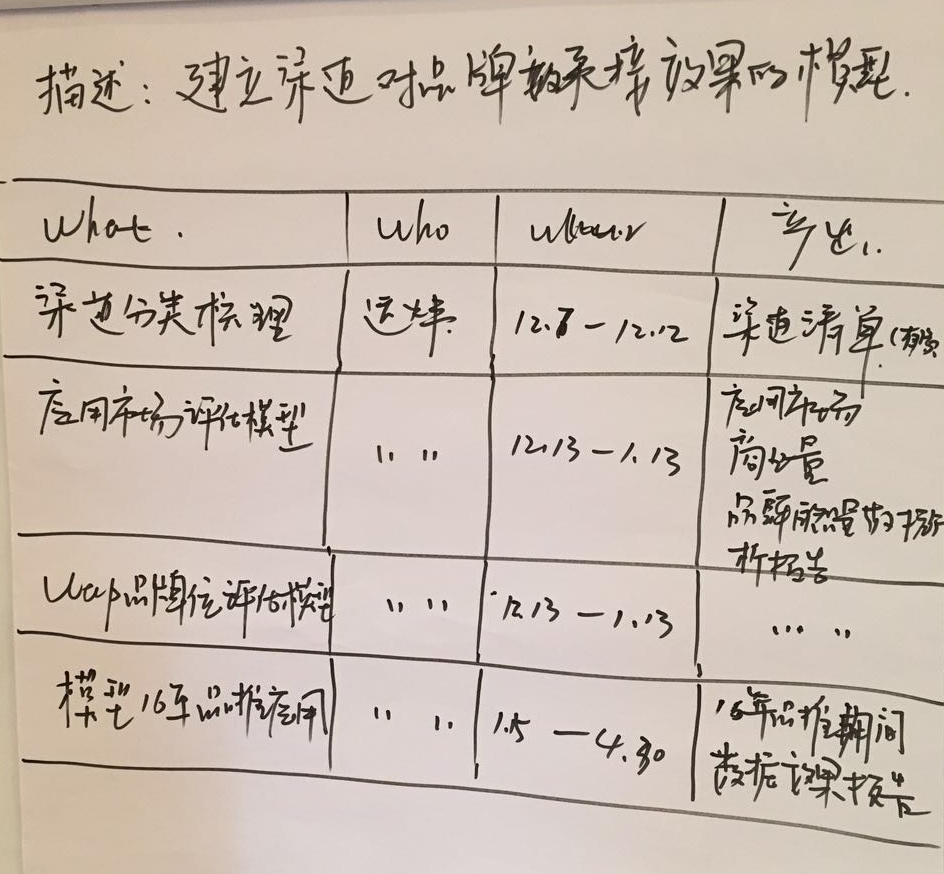 描述：建立渠道对品牌效果的模型.
What. Who 产出.
渠道分类梳理 12.8-12.12 渠道清单(
应用市场评估模型 " " 12.13-1.13 应用市场
量
品牌量的分
析报告
Wap品牌位评估模型 " " 12.13-1.13 " "
模型16年品推应用 " " 1.5-4.30 16年品推期间
数据效果报告